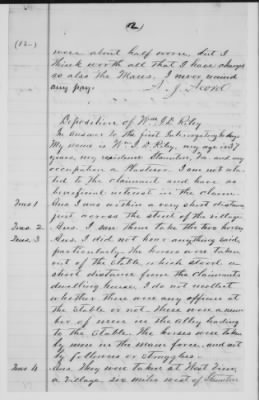 2
(12-)
were about half worn, but I
think worth all that I have charged
so also the Mares. I never received
any pay.
A. J.
Deposition of Wm J. D. Riley
In answer to the first Interrogatory he says
My name is Wm J. D. Riley, my age is 37
years, my residence Staunton, Va. and my
occupation a Plasterer. I am not rela-
ted to the claimant and have no
beneficial interest in the claim.
Ques 1 Ans. I was within a very short distance
just across the street of the village.
Ques. 2 Ans. I saw them take the two horses
Ques. 3 Ans. I did not hear anything said,
particularly. The horses were taken
out of the stable which stood a
short distance from the claimants
dwelling house. I do not recollect
whether there were any officers at
the stable or not. There were a num-
ber of men in the alley leading
to the stable. The horses were taken
by men in the main force, and not
by followers or stragglers.
Ques 4 Ans. They were taken at West View,
a village six miles west of Staunton